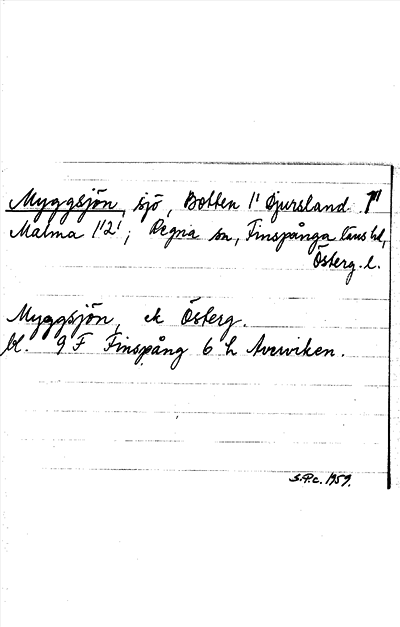 Myggsjön, sjö, Botten 1¹ Djursland 1¹¹
Malma 1¹2¹; Regna sn, Finspånga läns hd,
Österg. l.
Myggsjön, ek Österg.
bl. 9 F Finspång 6 h Averviken.
S.P.c. 1959.